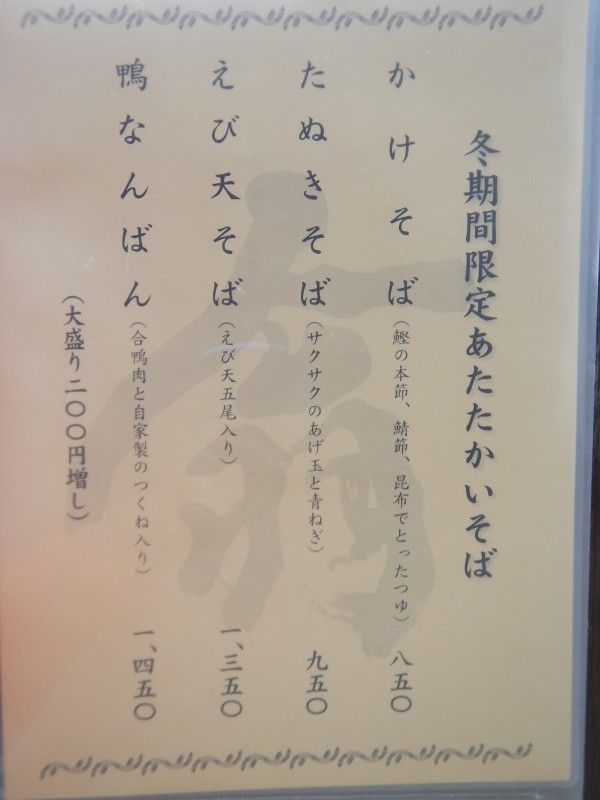 冬期間限定あたたかいそば
かけそば（鰹の本節、鯖節、昆布でとったつゆ）八五〇
たぬきそば（サクサクのあげ玉と青ねぎ）九五〇
えび天そば（えび天五尾入り）一、三五〇
鴨なんばん（合鴨肉と自家製のつくね入り）一、四五〇
（大盛り二〇〇円増し）